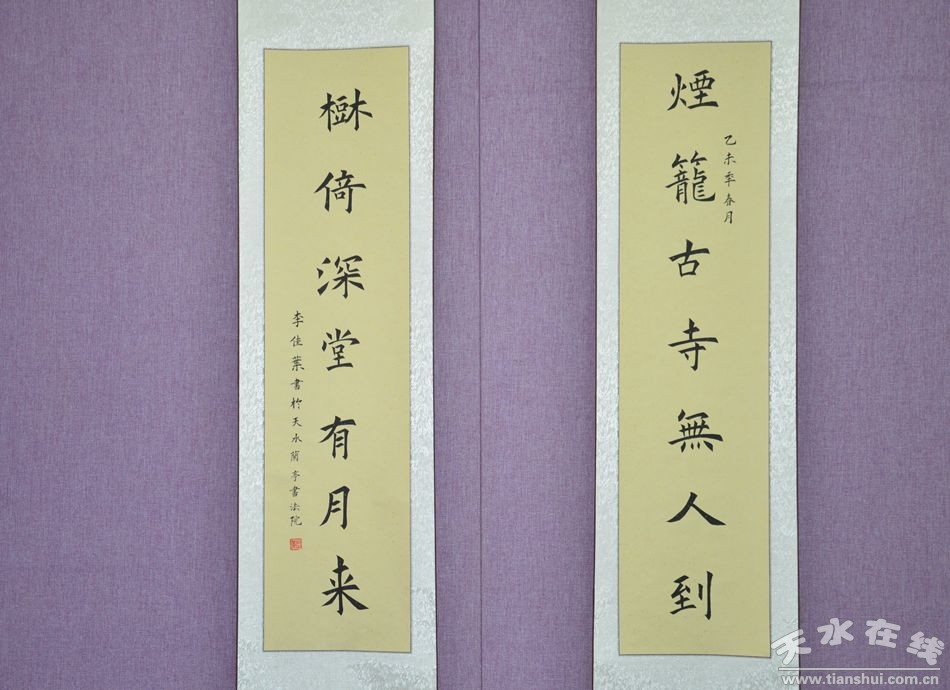 煙籠古寺無人到
乙未年春月
樹倚深堂有月来
李佳葉書於天水蘭亭書法院
天水在线
www.tianshui.com.cn